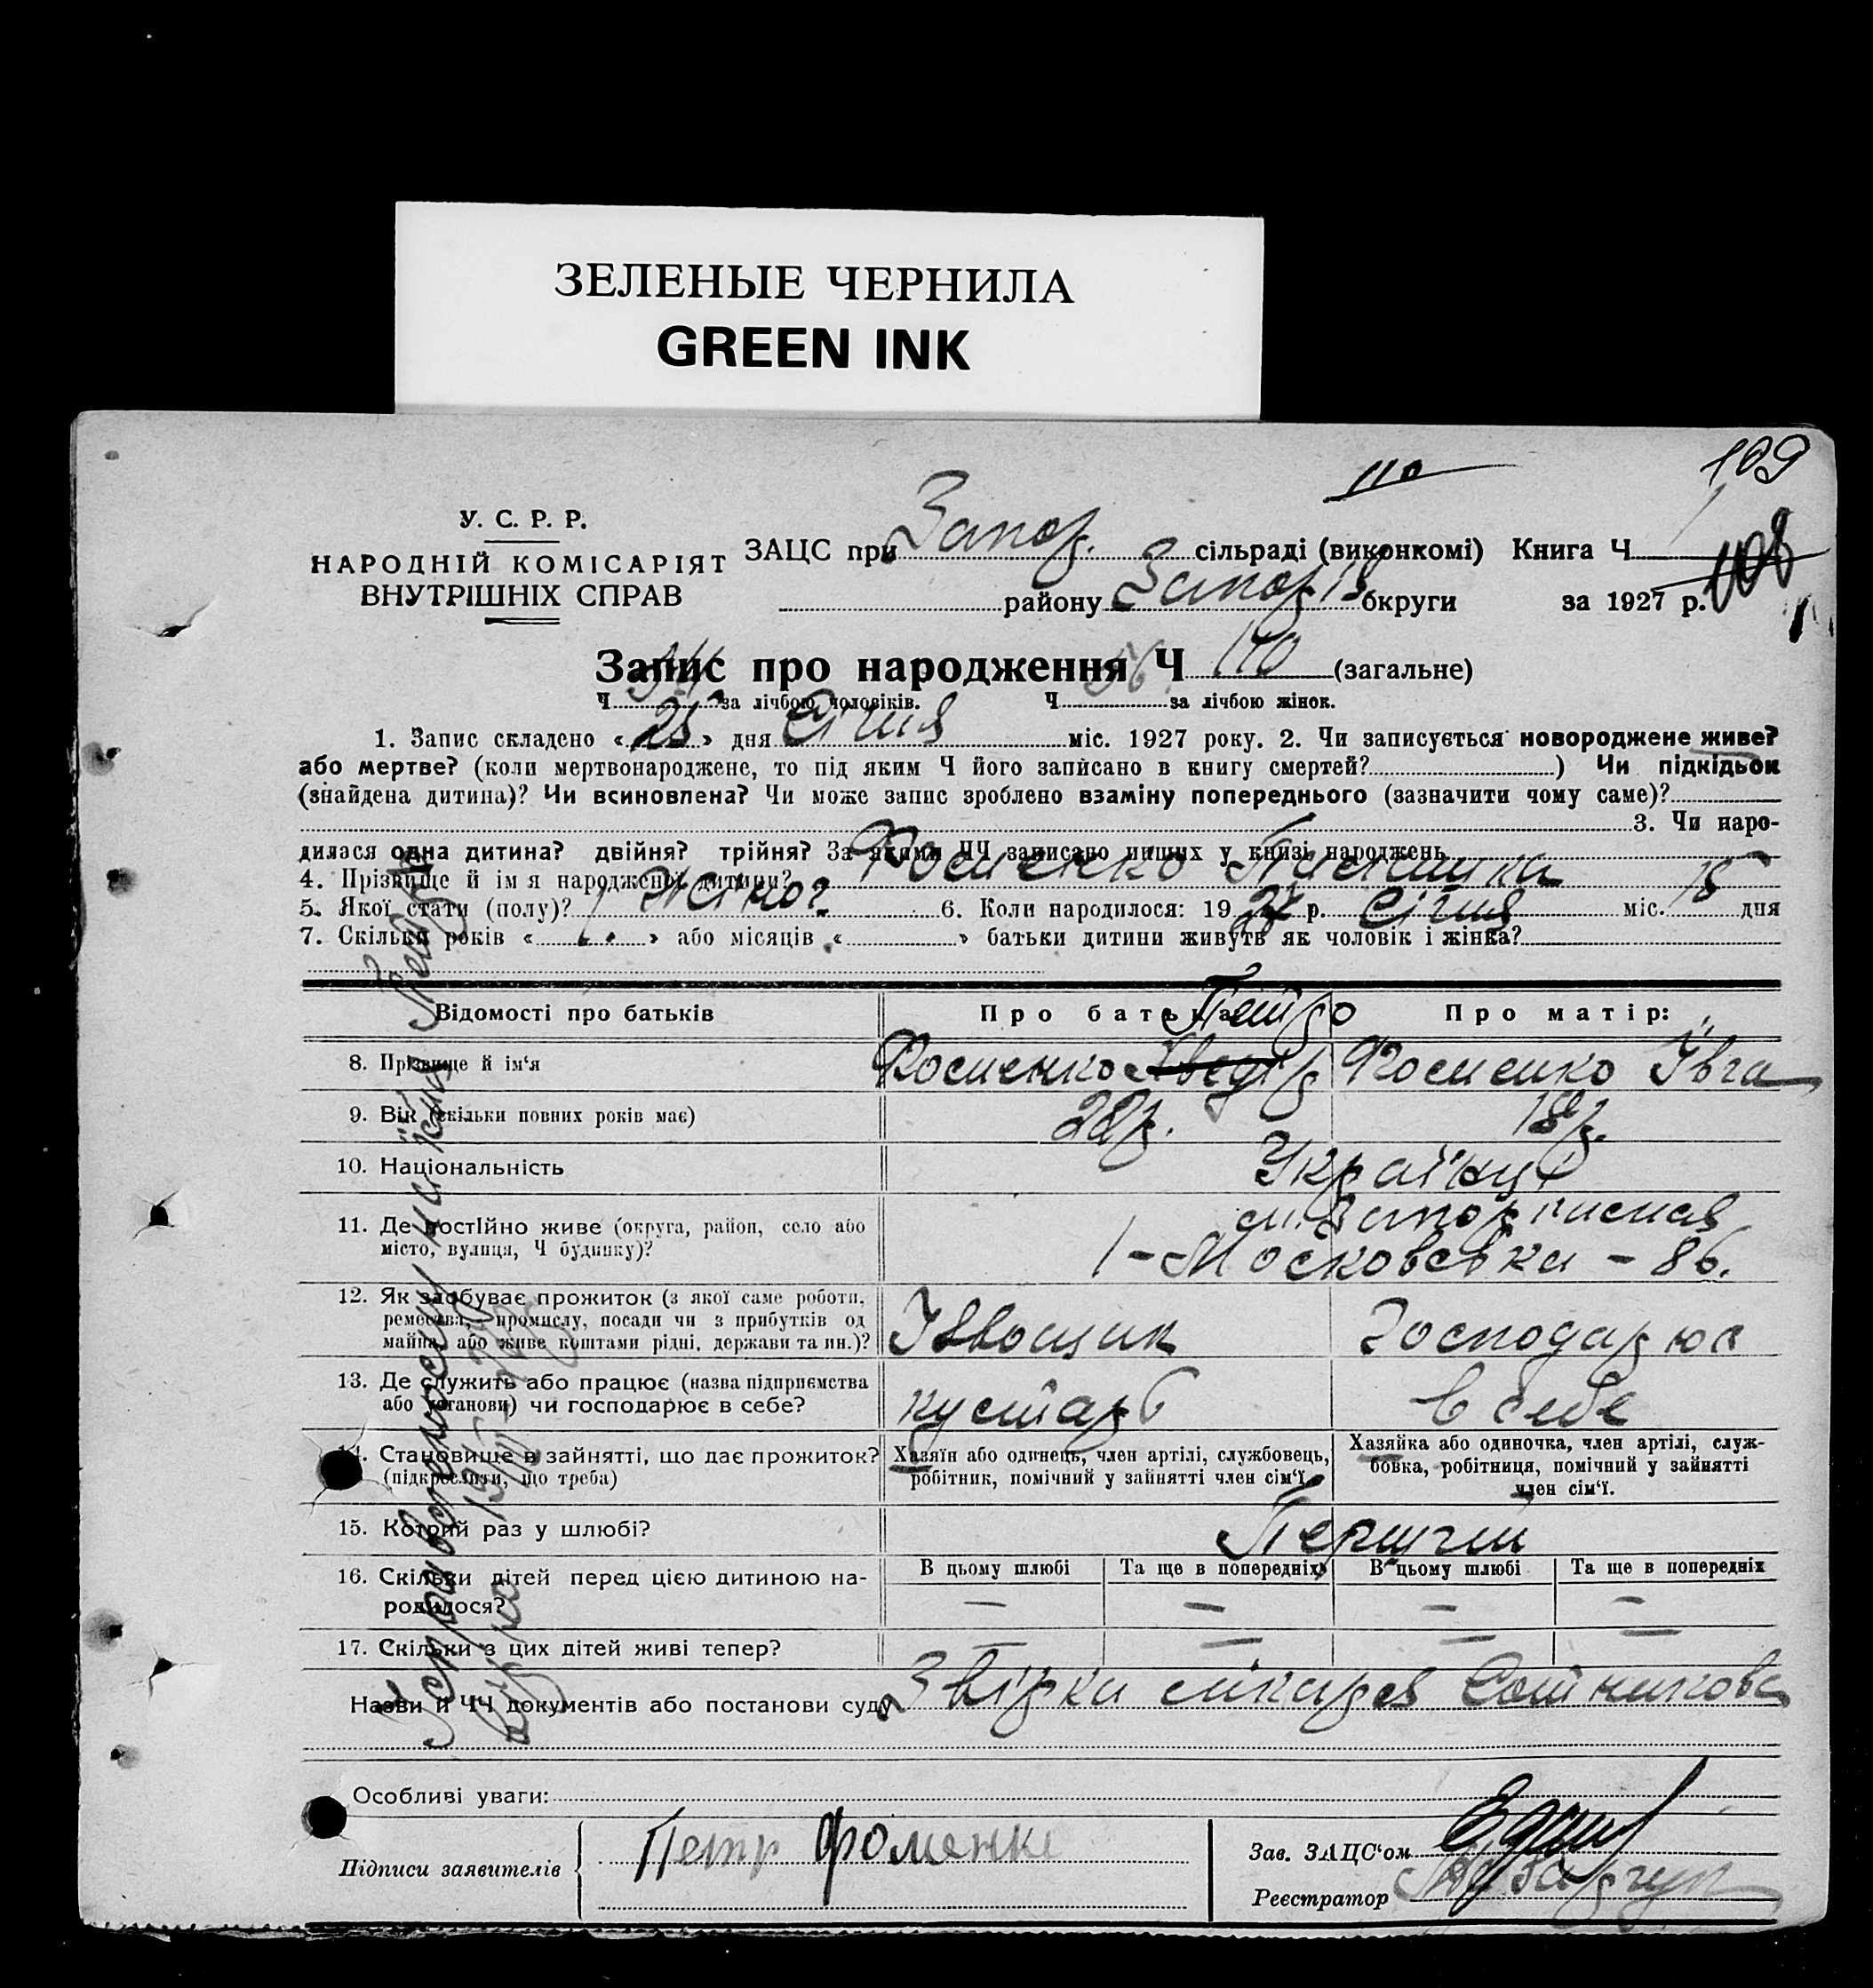 ЗЕЛЕНЫЕ ЧЕРНИЛА
GREEN INK
109
110
У. С. Р. Р.
НАРОДНІЙ КОМІСАРІЯТ
ВНУТРІШНІХ СПРАВ
ЗАЦС при Запор. сільраді (виконкомі) Книга Ч
району Запор округи за 1927 р. 108
Запис про народження Ч 110 (загальне)
Ч за лічбою чоловіків. Ч 56 за лічбою жінок.
1. Запис складено « 25 » дня Січня міс. 1927 року. 2. Чи записується новороджене живе?
або мертве? (коли мертвонароджене, то під яким Ч його записано в книгу смертей? ) Чи підкідьок
(знайдена дитина)? Чи всиновлена? Чи може запис зроблено взаміну попереднього (зазначити чому саме)?
3. Чи наро-
дилася одна дитина? двійня? трійня? За якими ЧЧ записано инших у книзі народжень
4. Прізвище й ім я народженої дитини? Фоменко
5. Якої стати (полу)? Жіноч. 6. Коли народилося: 19 27 р. Січня міс. 15 дня
7. Скільки років « 1 » або місяців « » батьки дитини живуть як чоловік і жінка?
Відомості про батьків Про батька: Про матір:
Петро
8. Прізвище й ім‘я Фоменко Фоменко Ївга
9. Вік (скільки повних років має) 22р. 18р.
10. Національність Українці
11. Де постійно живе (округа, район, село або
місто, вулиця, Ч будинку)?
1-Московська - 86.
12. Як здобуває прожиток (з якої саме роботи,
ремества, промислу, посади чи з прибутків од
майна, або живе коштами рідні, держави та ин.)? Ізвощик Господарює
13. Де служить або працює (назва підприємства
або установи) чи господарює в себе? кустарь в себе
14. Становище в зайнятті, що дає прожиток?
(підкреслити, що треба)
Хазяїн або одинець, член артілі, службовець,
робітник, помічний у зайнятті член сім‘ї.
Хазяйка або одиночка, член артілі, служ-
бовка, робітниця, помічний у зайнятті
член сім‘ї.
15. Котрий раз у шлюбі? Перший
16. Скільки дітей перед цією дитиною на-
родилося?
В цьому шлюбі Та ще в попередніх В цьому шлюбі Та ще в попередніх
— — — —
17. Скільки з цих дітей живі тепер? — — — —
Назви й ЧЧ документів або постанови суду Звірка лікаря Сотникова
Особливі уваги:
Підписи заявителів Петр Фоменко
Зав. ЗАЦС‘ом
Реєстратор